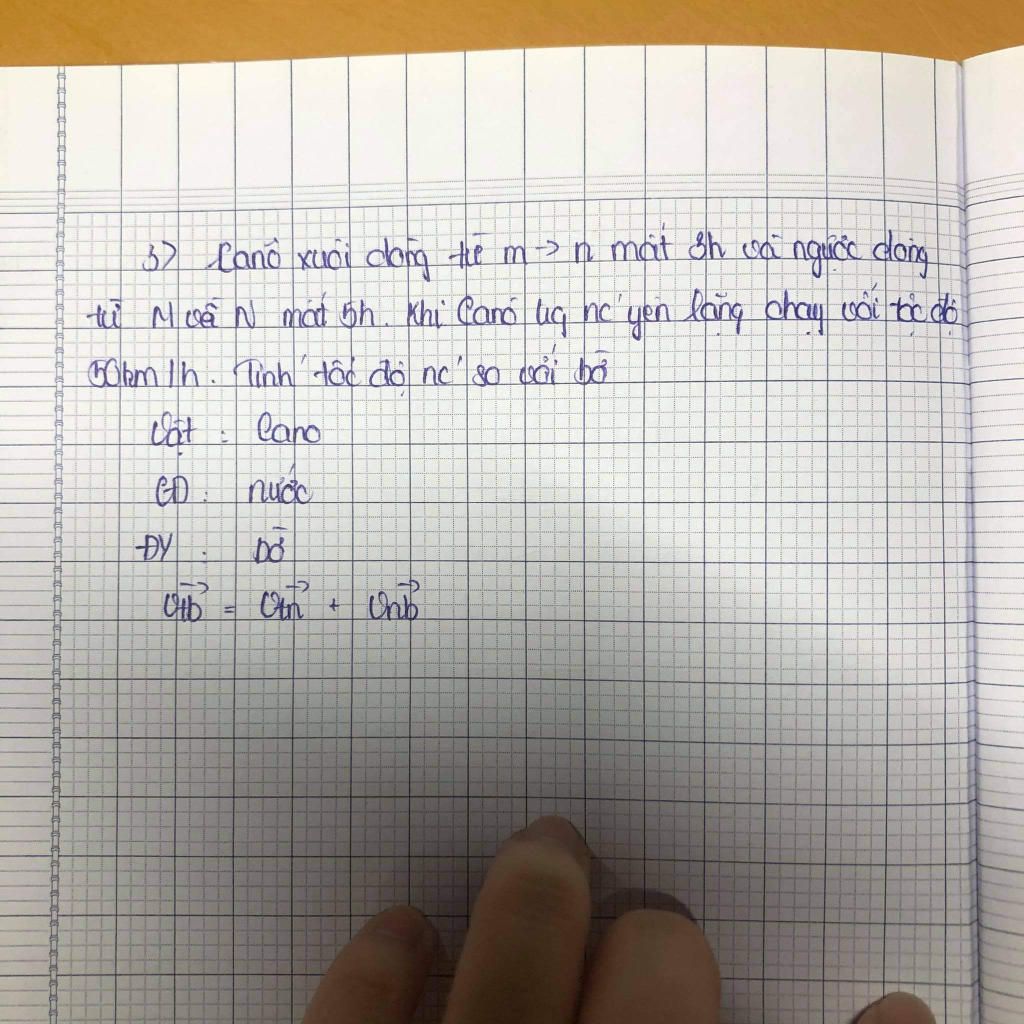 3) Canô xuôi dòng từ m -> n mất 3h và ngược dòng
từ M về N mất 5h. Khi Canô nc yên lặng chạy với tốc độ
50km/h. Tính tốc độ nc so với bờ
Vật : Cano
CĐ : nước
ĐY : bờ
v→tb = v→tn + v→nb